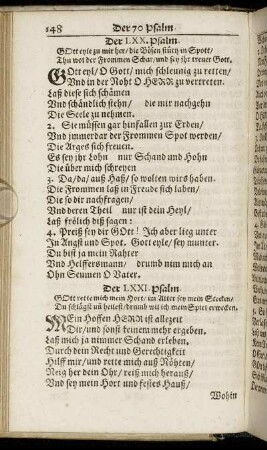 148 Der 70 Psalm.
Der LXX. Psalm.
GOtt eyle zu mir her/ die Bösen stürtz in Spott/
Thu wol der Frommen Schar/ und sey ihr treuer Gott.
GOtt eyl/ O Gott/ mich schleunig zu retten/
Vnd in der Noht O HERR zu vertreten.
Laß diese sich schämen
Vnd schändlich stehn/ die mir nachgehn
Die Seele zu nehmen.
2. Sie müssen gar hinfallen zur Erden/
Vnd immerdar der Frommen Spot werden/
Die Arges sich freuen.
Es sey ihr Lohn nur Schand und Hohn
Die über mich schreyen
3. Da/ da/ auß Haß/ so wolten wirs haben.
Die Frommen laß in Freude sich laben/
Die so dir nachfragen/
Vnd deren Theil nur ist dein Heyl/
Laß frölich diß sagen:
4. Preiß sey dir GOtt! Ich aber lieg unter
In Angst und Spot. Gott eyle/ sey munter.
Du bist ja mein Rahter
Vnd Helffersmann/ drumb nim mich an
Ohn Seumen O Vater.
Der LXXI. Psalm.
GOtt rette mich mein Hort/ im Alter sey mein Stecken/
Du schlägst uñ heilest/ drumb wil ich mein Spiel erwecken.
MEin Hoffen HERR ist allezeit
Dir/ und sonst keinem mehr ergeben.
Laß mich ja nimmer Schand erleben.
Durch dein Recht und Gerechtigkeit
Hilff mir/ und rette mich auß Nöhten/
Neig her dein Ohr/ reiß mich herauß/
Vnd sey mein Hort und festes Hauß/
Wohin